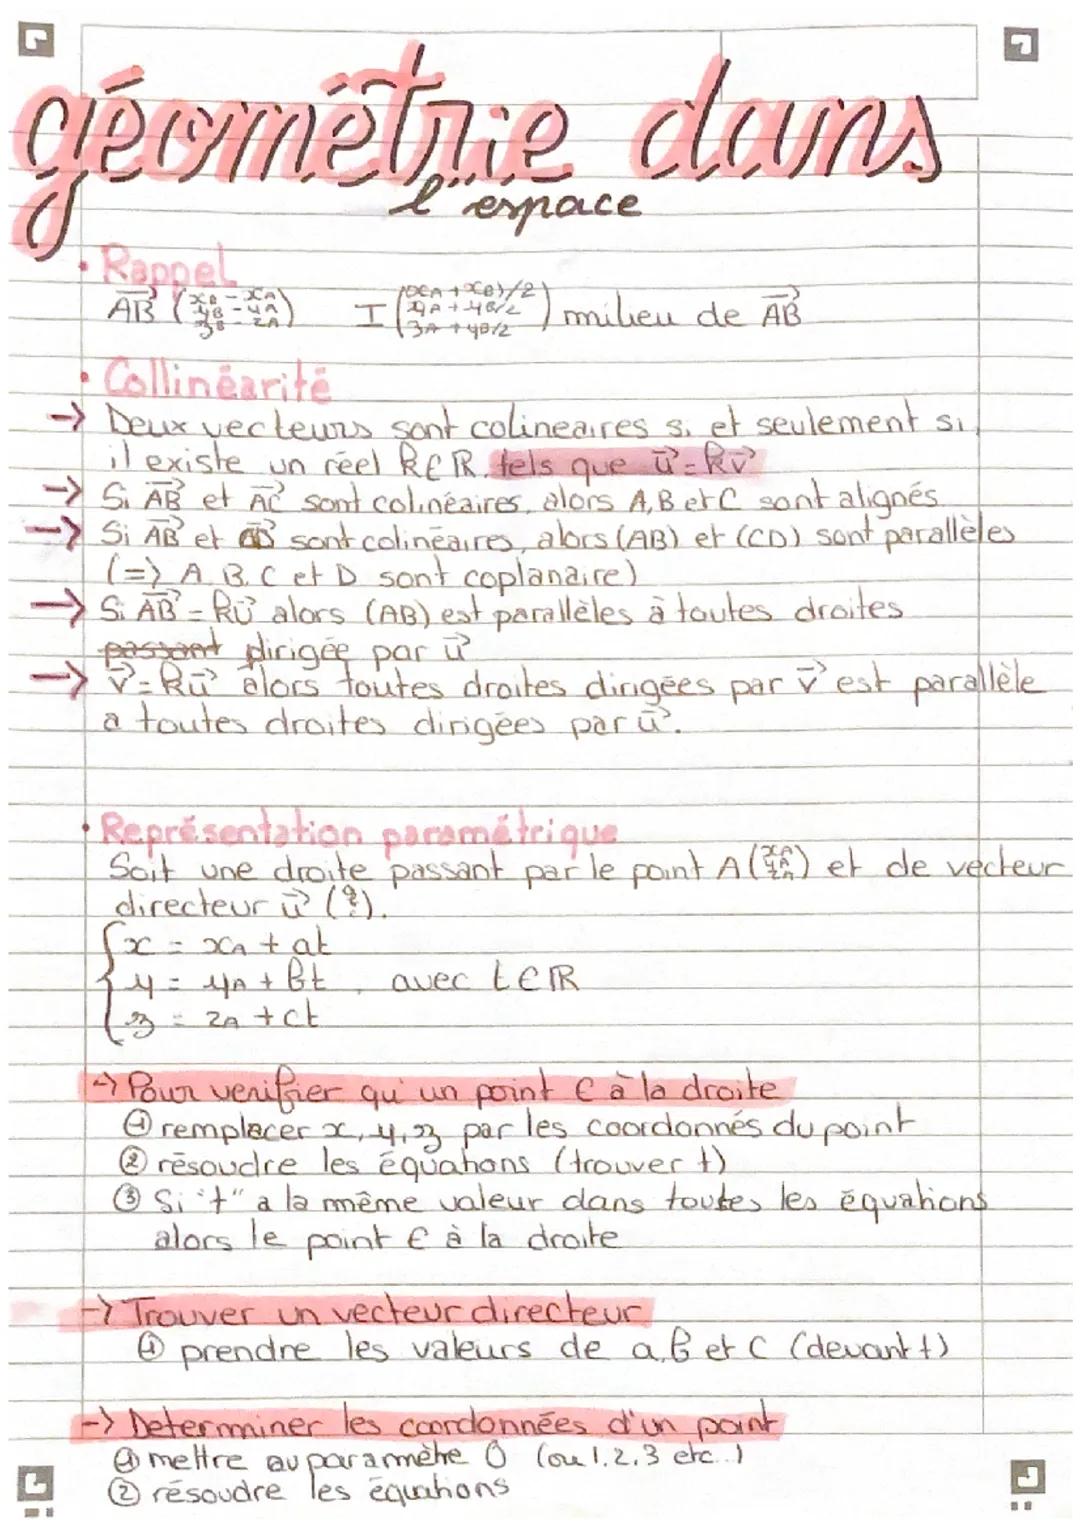 géométrie dans
l'espace
• Rappel
AB⃗ (xB - xA
yB - yA
zB - zA) I ((xA + xB)/2
yA + yB/2
zA + yB/2) milieu de AB⃗
• Collinéarité
→ Deux vecteurs sont colineaires si et seulement si
il existe un réel k∈ℝ, tels que u⃗ = kv⃗
→ Si AB⃗ et AC⃗ sont colinéaires, alors A, B et C sont alignés.
→ Si AB⃗ et CD⃗ sont colinéaires, alors (AB) et (CD) sont parallèles
(=> A, B, C et D sont coplanaire)
→ Si AB⃗ = ku⃗ alors (AB) est parallèles à toutes droites
passant dirigée par u⃗
→ v⃗ = ku⃗ alors toutes droites dirigées par v⃗ est parallèle
a toutes droites dirigées par u⃗.
• Représentation paramétrique
Soit une droite passant par le point A (xA
yA
zA) et de vecteur
directeur u⃗ (a
b
c).
{ x = xA + at
y = yA + bt, avec t∈ℝ
z = zA + ct
→ Pour verifier qu'un point ∈ à la droite
① remplacer x, y, z par les coordonnés du point
② résoudre les équations (trouver t)
③ Si "t" a la même valeur dans toutes les équations
alors le point ∈ à la droite
→ Trouver un vecteur directeur
① prendre les valeurs de a, b et c (devant t)
→ Determiner les coordonnées d'un point
① mettre au paramètre 0 (ou 1, 2, 3 etc...)
② résoudre les équations